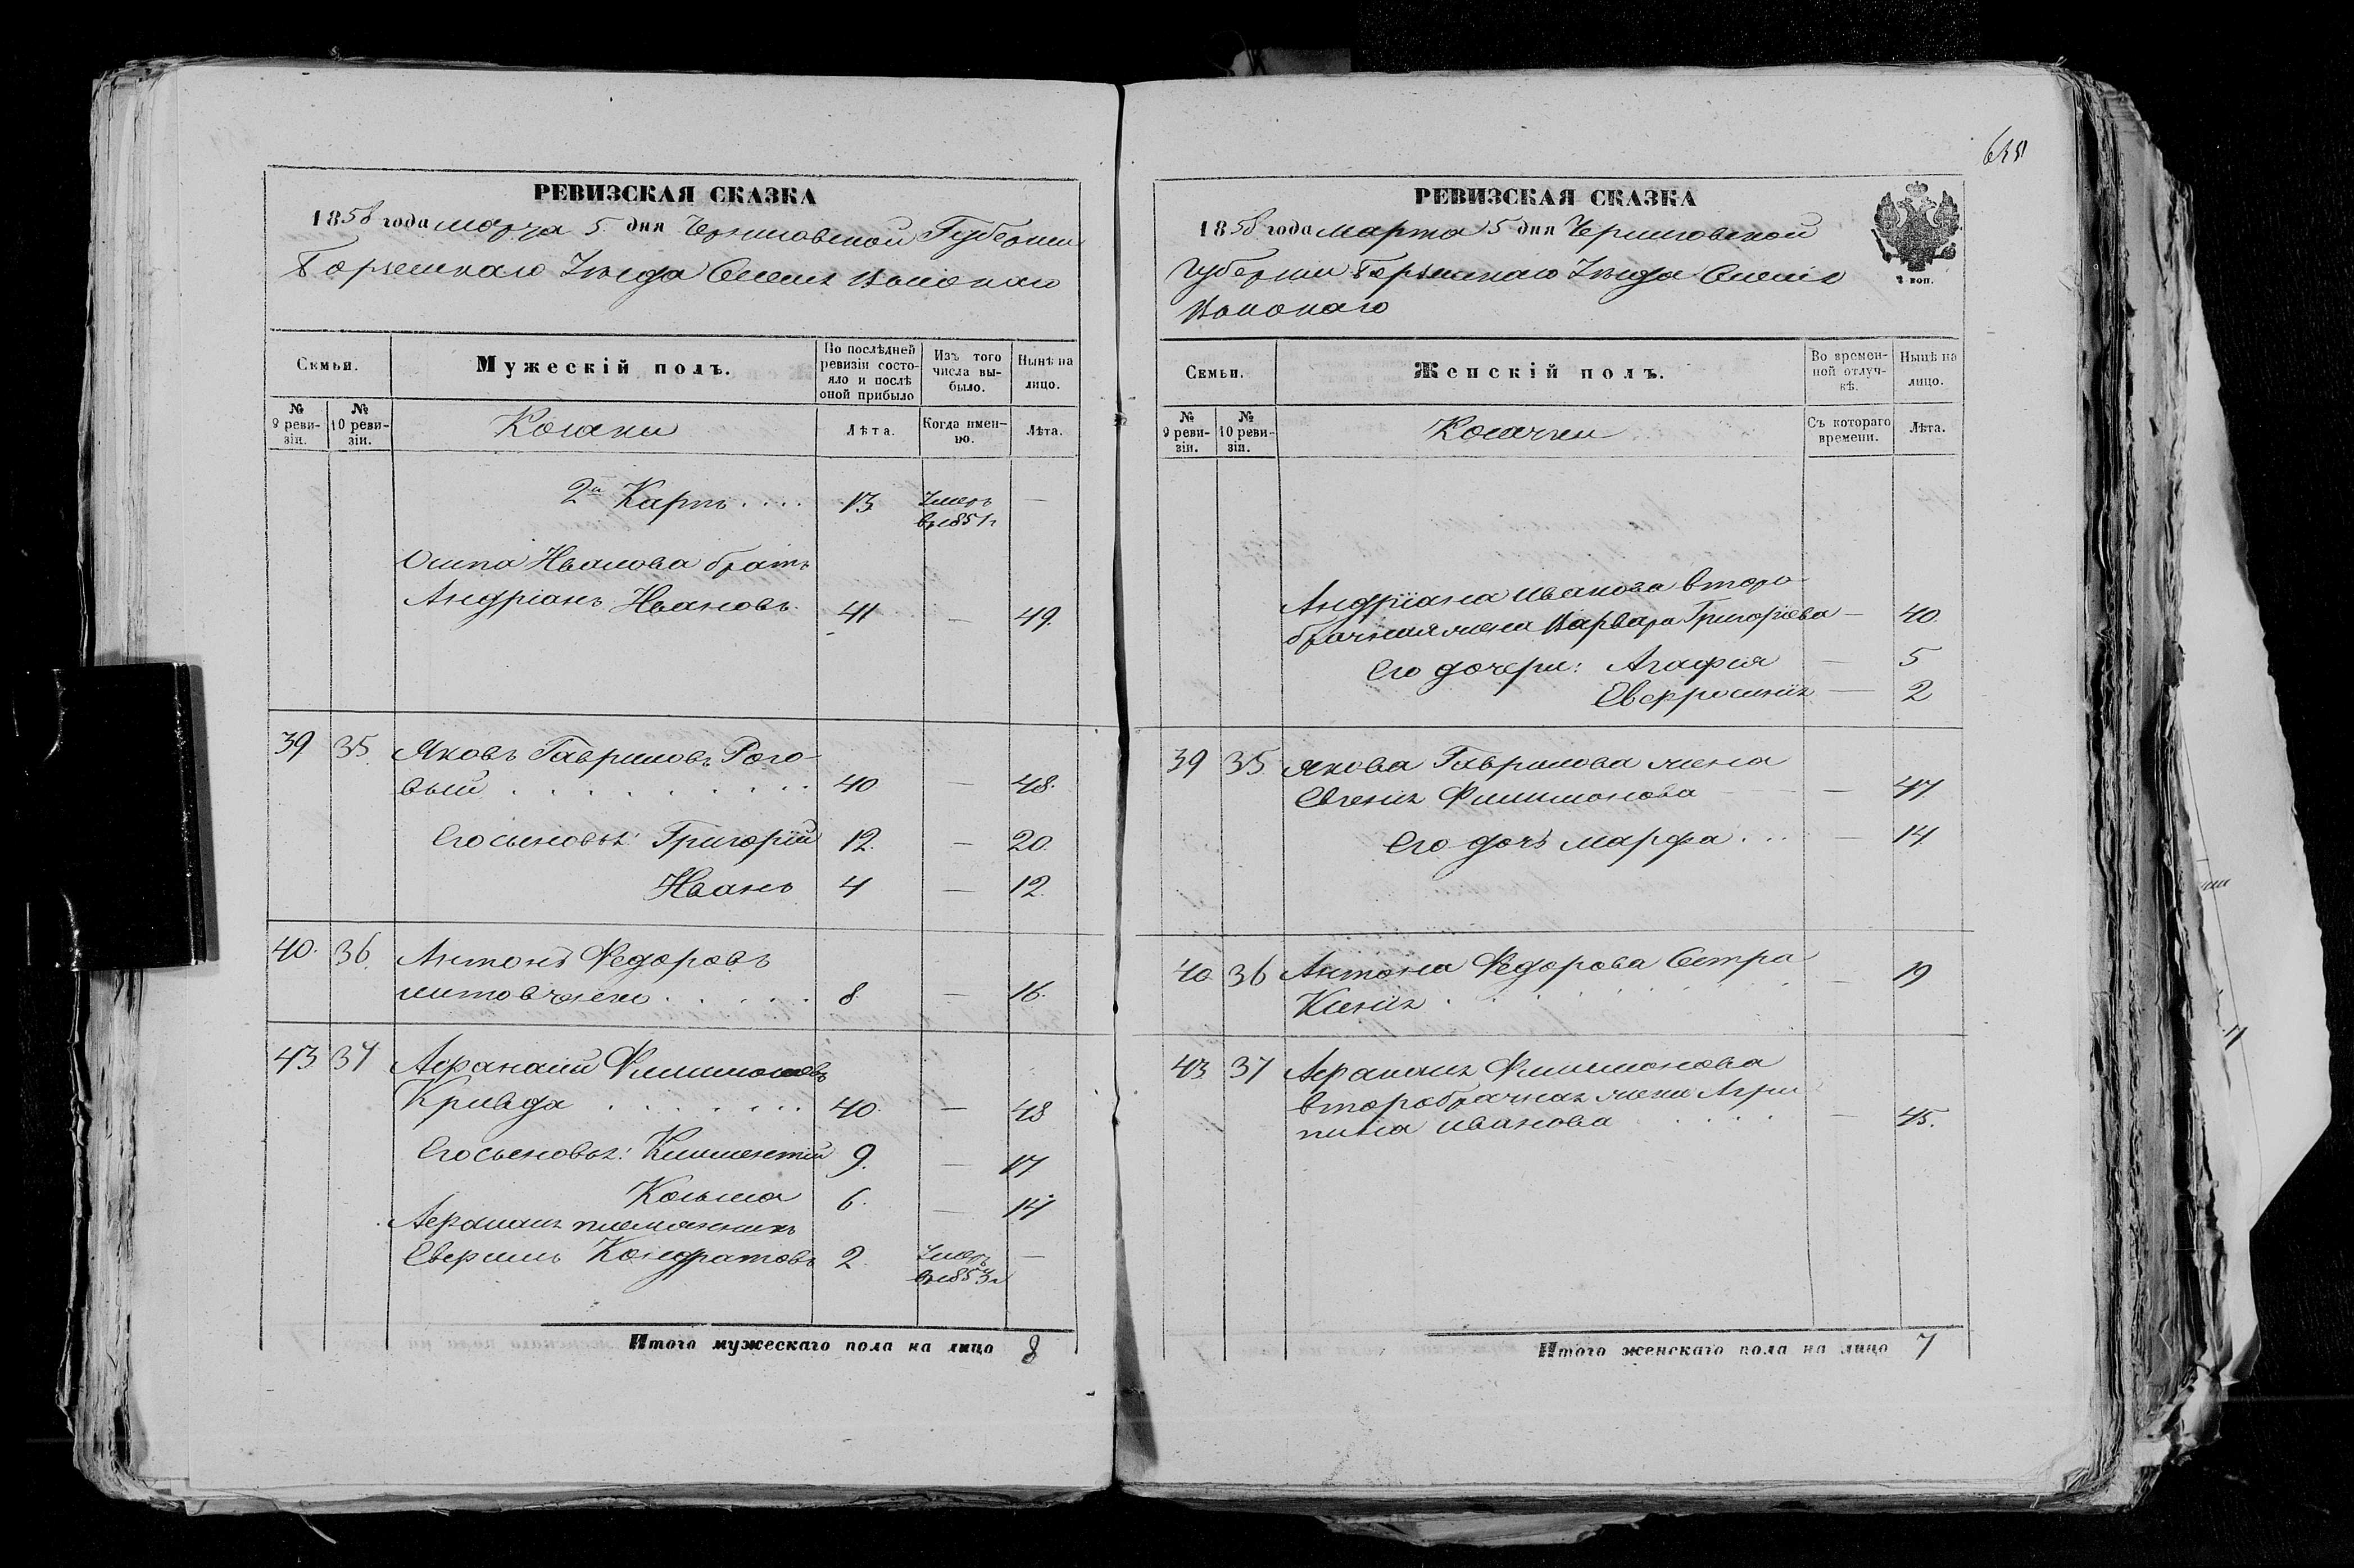 РЕВИЗСКАЯ СКАЗКА
1858 года марта 5 дня Черниговской Губерніи
Борзенскаго Уезда
Семьи.
Мужескій полъ.
По послѣдней ревизіи состояло и послѣ оной прибыло
Изъ того числа выбыло.
Нынѣ на лицо.
№ 9 ревизіи.
№ 10 ревизіи.
Козаки
Лѣта.
Когда именно.
Лѣта.
2й Карпъ .... 13 Умеръ в 1851г —
Осипа Иванова братъ
Андріанъ Ивановъ 41 — 49.
39 35 Яковъ Гавриловъ Рого-
вый . . . . . . . . . 40 — 48.
Его сыновья: Григорій 12. — 20.
Иванъ 4 — 12.
40. 36. Антонъ Федоровъ
Литовченко . . . . . 8. — 16.
43 37 Афанасий Филимоновъ
Кривда . . . . . . . 40. — 48
Его сыновья: Климентий 9. — 17
Козьма 6. — 14
Афанасия племянникъ
Евфимъ Кондратовъ 2. Умеръ в 1853г —
Итого мужескаго пола на лицо 8
631
РЕВИЗСКАЯ СКАЗКА
1858 года марта 5 дня Черниговской
Губерніи Борзенскаго Уезда
2 коп.
Семьи.
Женскій полъ.
Во временной отлучкѣ.
Нынѣ на лицо.
№ 9 ревизіи.
№ 10 ревизіи.
Козачки
Съ котораго времени.
Лѣта.
Андріана Иванова второ-
брачная жена Варвара Григорïева — 40.
Его дочери: Агафия — 5
Евфросиния — 2
39 35 Якова Гаврилова жена
Евгения Филимонова — 47
Его дочь Марфа ... — 14.
40. 36 Антона Федорова Сестра — 19
Ксения . . . . . . . .
43 37 Афанасия Филимонова
второбрачная жена Агри
пина Иванова . . . . — 45.
Итого женскаго пола на лицо 7